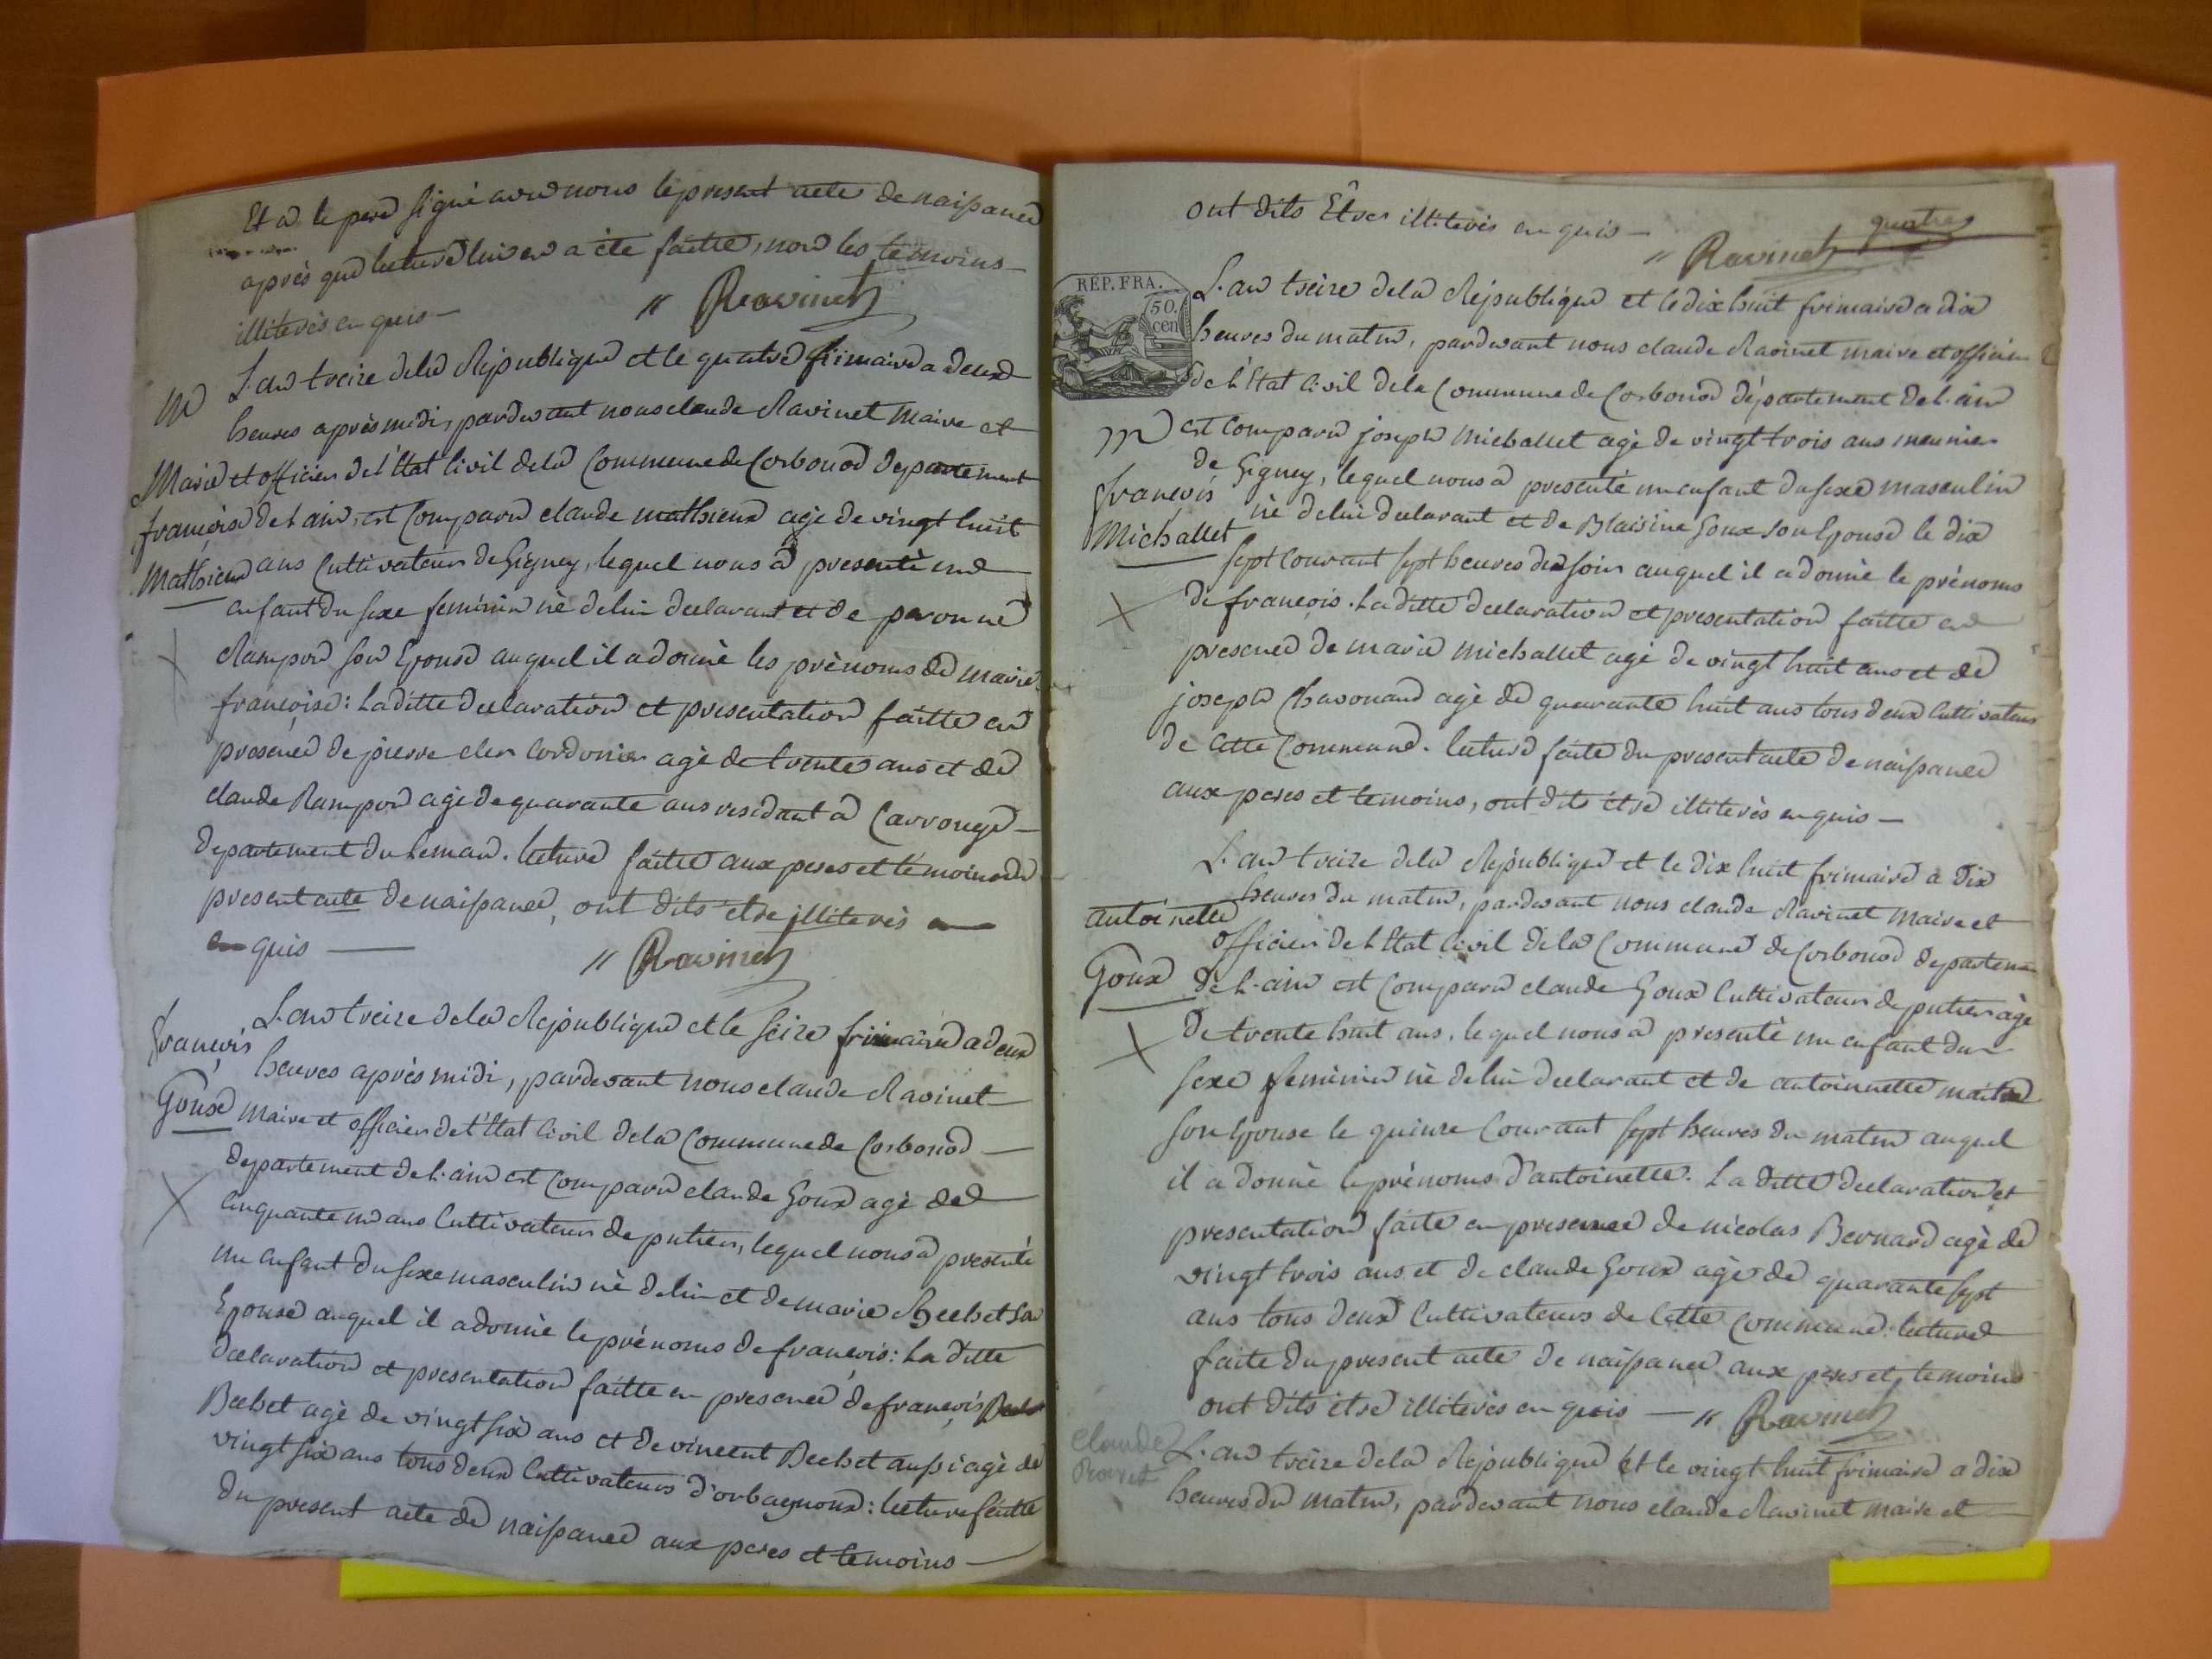 Et a le pere signé avec nous le present acte de naissance
après que lecture lui en a été faitte, non les temoins
illiterés enquis
" Ravinet
M
L'an treize de la Republique et le quatre frimaire a deux
heures après midi, pardevant nous claude Ravinet Maire et
Marie
et officier de l'Etat Civil de la Commune de Corbonod departement
françoise
de l'ain, est Comparu claude mathieux agé de vingt huit
Mathieux
ans Cultivateur de Gigney, lequel nous a presenté un
enfant du sexe feminin né de lui declarant et de peronne
Rampon son Epouse auquel il a donné les prénoms de marie
françoise : La ditte declaration et presentation faitte en
presence de pierre cler Cordonier agé de trente ans et de
claude Rampon agé de quarante ans residant a Carrouge
departement du Leman. lecture faitte aux peres et témoins du
present acte de naissance, ont dits etre illiterés
enquis
" Ravinet
L'an treize de la Republique et le seize frimaire a deux
françois
heures après midi, pardevant nous claude Ravinet
Goux
Maire et officier de l'Etat Civil de la Commune de Corbonod
departement de l'ain est Comparu claude Goux agé de
Cinquante un ans Cultivateur de putier, lequel nous a presenté
un enfant du sexe masculin né de lui et de marie Bechet sa
Epouse auquel il a donné le prénoms de françois : La ditte
declaration et presentation faitte en presence de françois
Bechet agé de vingt six ans et de vincent Bechet aussi agé de
vingt six ans tous deux Cultivateurs d'orbagnoux : lecture faitte
du present acte de naissance aux peres et temoins
ont dits Etres illiterés enquis
quatre
" Ravinet
RÉP. FRA.
50.
cen
L'an treize de la Republique et le dix huit frimaire a dix
heures du matin, pardevant nous claude Ravinet maire et officier
de l'Etat Civil de la Commune de Corbonod département de l'ain
M
est Comparu joseph michallet agé de vingt trois ans meunier
françois
de Gigney, lequel nous a presenté un enfant du sexe masculin
Michallet
né de lui declarant et de Blaisine Goux son Epouse le dix
sept Courant sept heures du soir auquel il a donné le prénoms
de françois. La ditte declaration et presentation faitte en
presence de marie michallet agé de vingt huit ans et de
joseph Chavonand agé de quarante huit ans tous deux Cultivateurs
de Cette Commune. lecture faite du present acte de naissance
aux peres et temoins, ont dits etre illiterés enquis
L'an treize de la Republique et le dix huit frimaire a dix
antoinette
heures du matin, pardevant nous claude Ravinet Maire et
officier de l'Etat Civil de la Commune de Corbonod departement
Goux
de l'ain est Comparu claude Goux Cultivateur de putier agé
de trente huit ans, lequel nous a presenté un enfant du
sexe feminin né de lui declarant et de antoinnette
son Epouse le quinze Courant sept heures du matin auquel
il a donné le prénoms d'antoinette. La ditte declaration et
presentation faite en presence de nicolas Bernard agé de
vingt trois ans et de claude Goux agé de quarante sept
ans tous deux Cultivateurs de Cette Commune : lecture
faite du present acte de naissance aux peres et temoins
ont dits etre illiterés enquis " Ravinet
claude
L'an treize de la Republique et le vingt huit frimaire a dix
heures du matin, pardevant nous claude Ravinet maire et